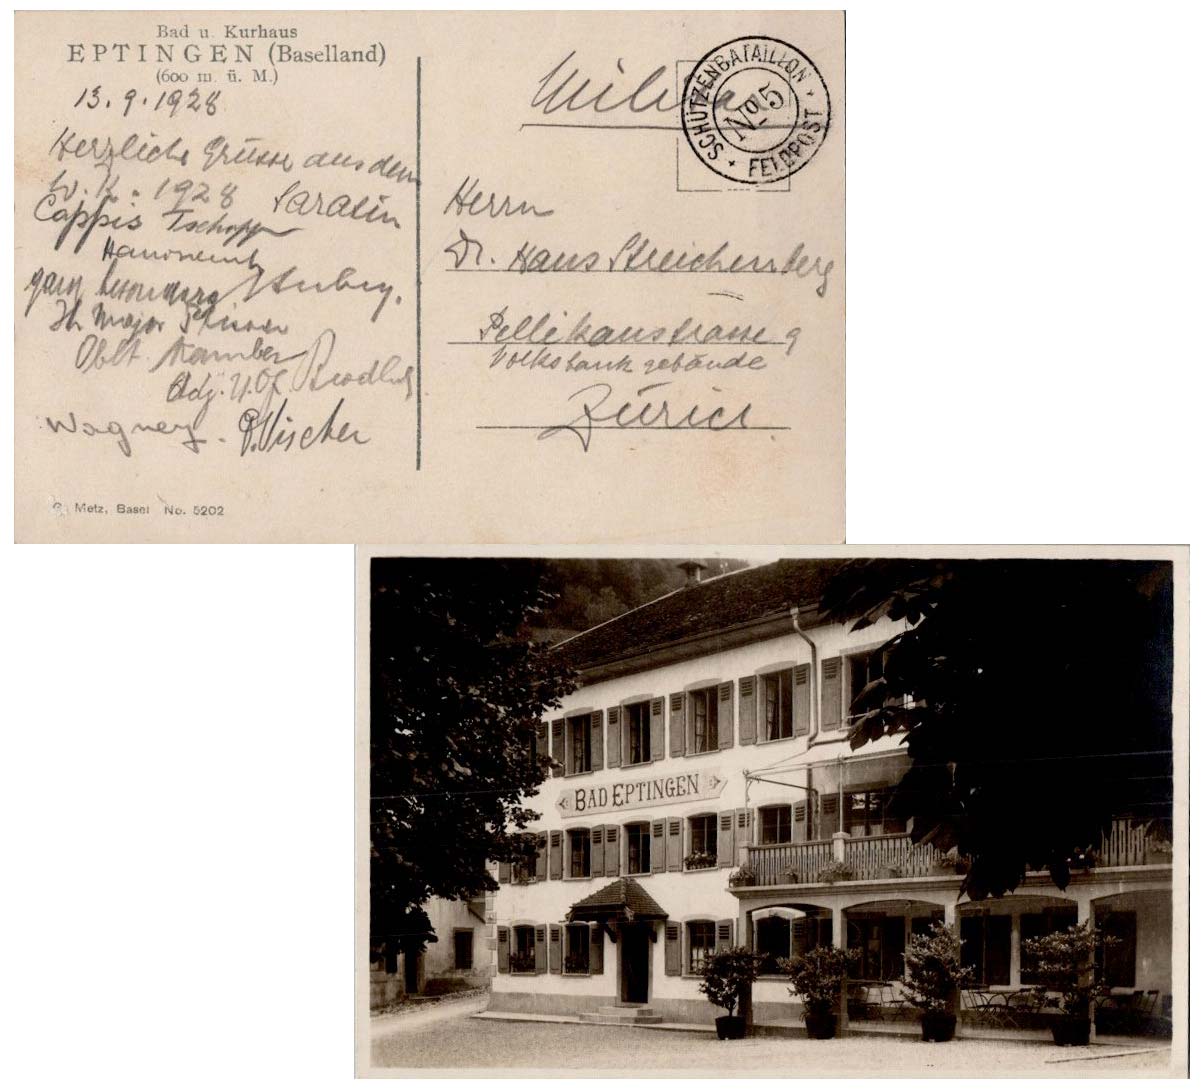 Bad u. Kurhaus
EPTINGEN (Baselland)
(600 m. ü. M.)
13.9.1928
Herzliche Grüsse aus dem
W.K. 1928 Sarasin
Cappis Tschopp
ganz besonders
Ihr Major
Oblt.
Adj. U.Of.
Wagner. P. Vischer
G. Metz, Basel No. 5202
Militär
SCHÜTZENBATAILLON
No 5
FELDPOST
Herrn
Dr. Hans Streichenberg
Pellikanstrasse 9
Volksbank gebäude
Zürich.
BAD EPTINGEN